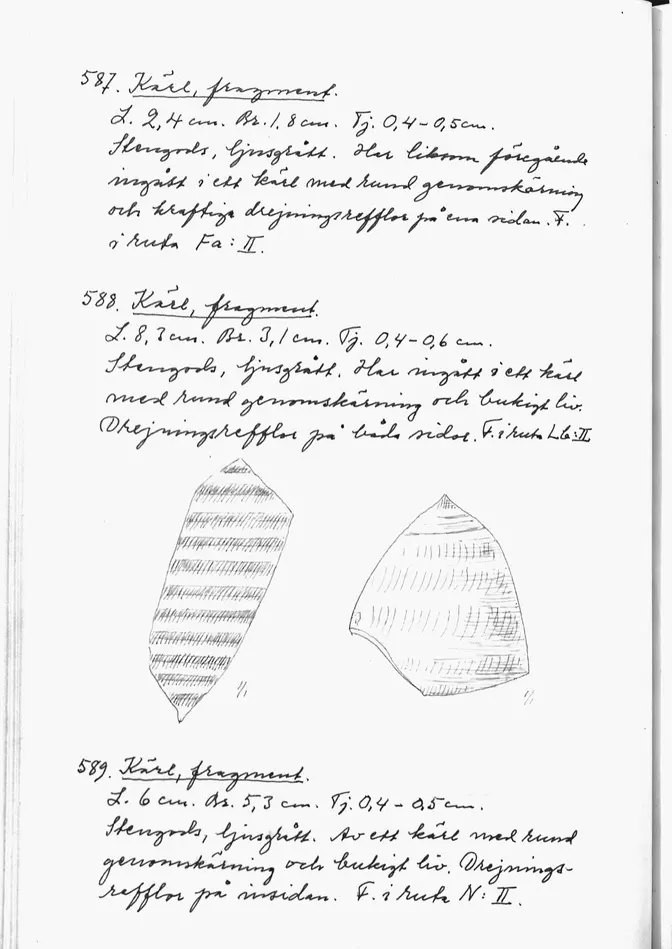 587. Kärl, fragment.
L. 2,4 cm. Br. 1,8 cm. Tj. 0,4-0,5 cm.
Stengods, ljusgrått. Har liksom föregående
ingått i ett kärl med rund genomskärning
och kraftiga drejningsrefflor på ena sidan. F.
i ruta Fa: II.
588. Kärl, fragment.
L. 8,3 cm. Br. 3,1 cm. Tj. 0,4-0,6 cm.
Stengods, ljusgrått. Har ingått i ett kärl
med rund genomskärning och bukigt liv.
Drejningsrefflor på båda sidor. F. i ruta Lb:II
1/1
1/1
589. Kärl, fragment.
L. 6 cm. Br. 5,3 cm. Tj. 0,4-0,5 cm.
Stengods, ljusgrått. Av ett kärl med rund
genomskärning och bukigt liv. Drejnings-
refflor på insidan. F. i ruta N: II.